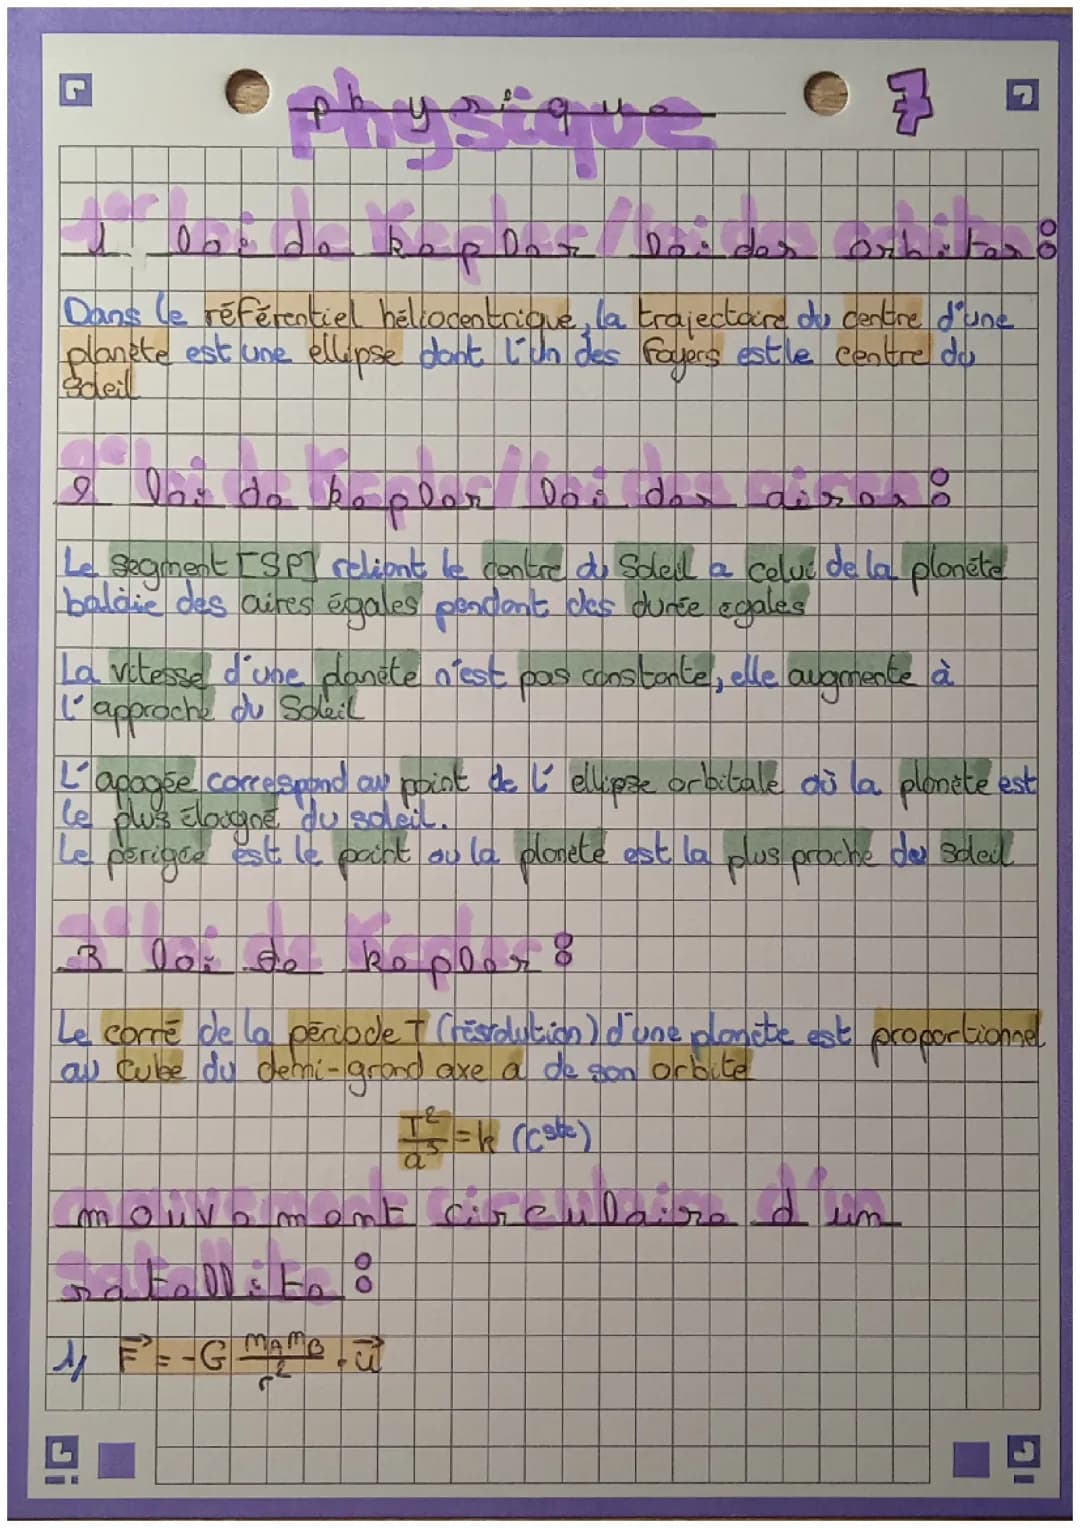 physique 7
1er loi de Kepler / loi des orbites :
Dans le référentiel héliocentrique, la trajectoire du centre d'une
planète est une ellipse dont l'un des foyers est le centre du
Soleil
2e loi de Kepler / loi des aires :
Le segment [SP] reliant le centre du Soleil a celui de la planète
balaie des aires égales pendant des durée egales
La vitesse d'une planète n'est pas constante, elle augmente à
l'approche du Soleil
L'apogée correspond au point de l'ellipse orbitale où la planète est
le plus éloigné du soleil.
Le périgée est le point ou la planete est la plus proche du soleil
3e loi de Kepler :
Le carré de la période T (révolution) d'une planète est proportionnel
au cube du demi-grand axe a de son orbite
T²/a³ = k (cste)
mouvement circulaire d'un
satellite :
1) F⃗ = -G mAmB/r² . u⃗